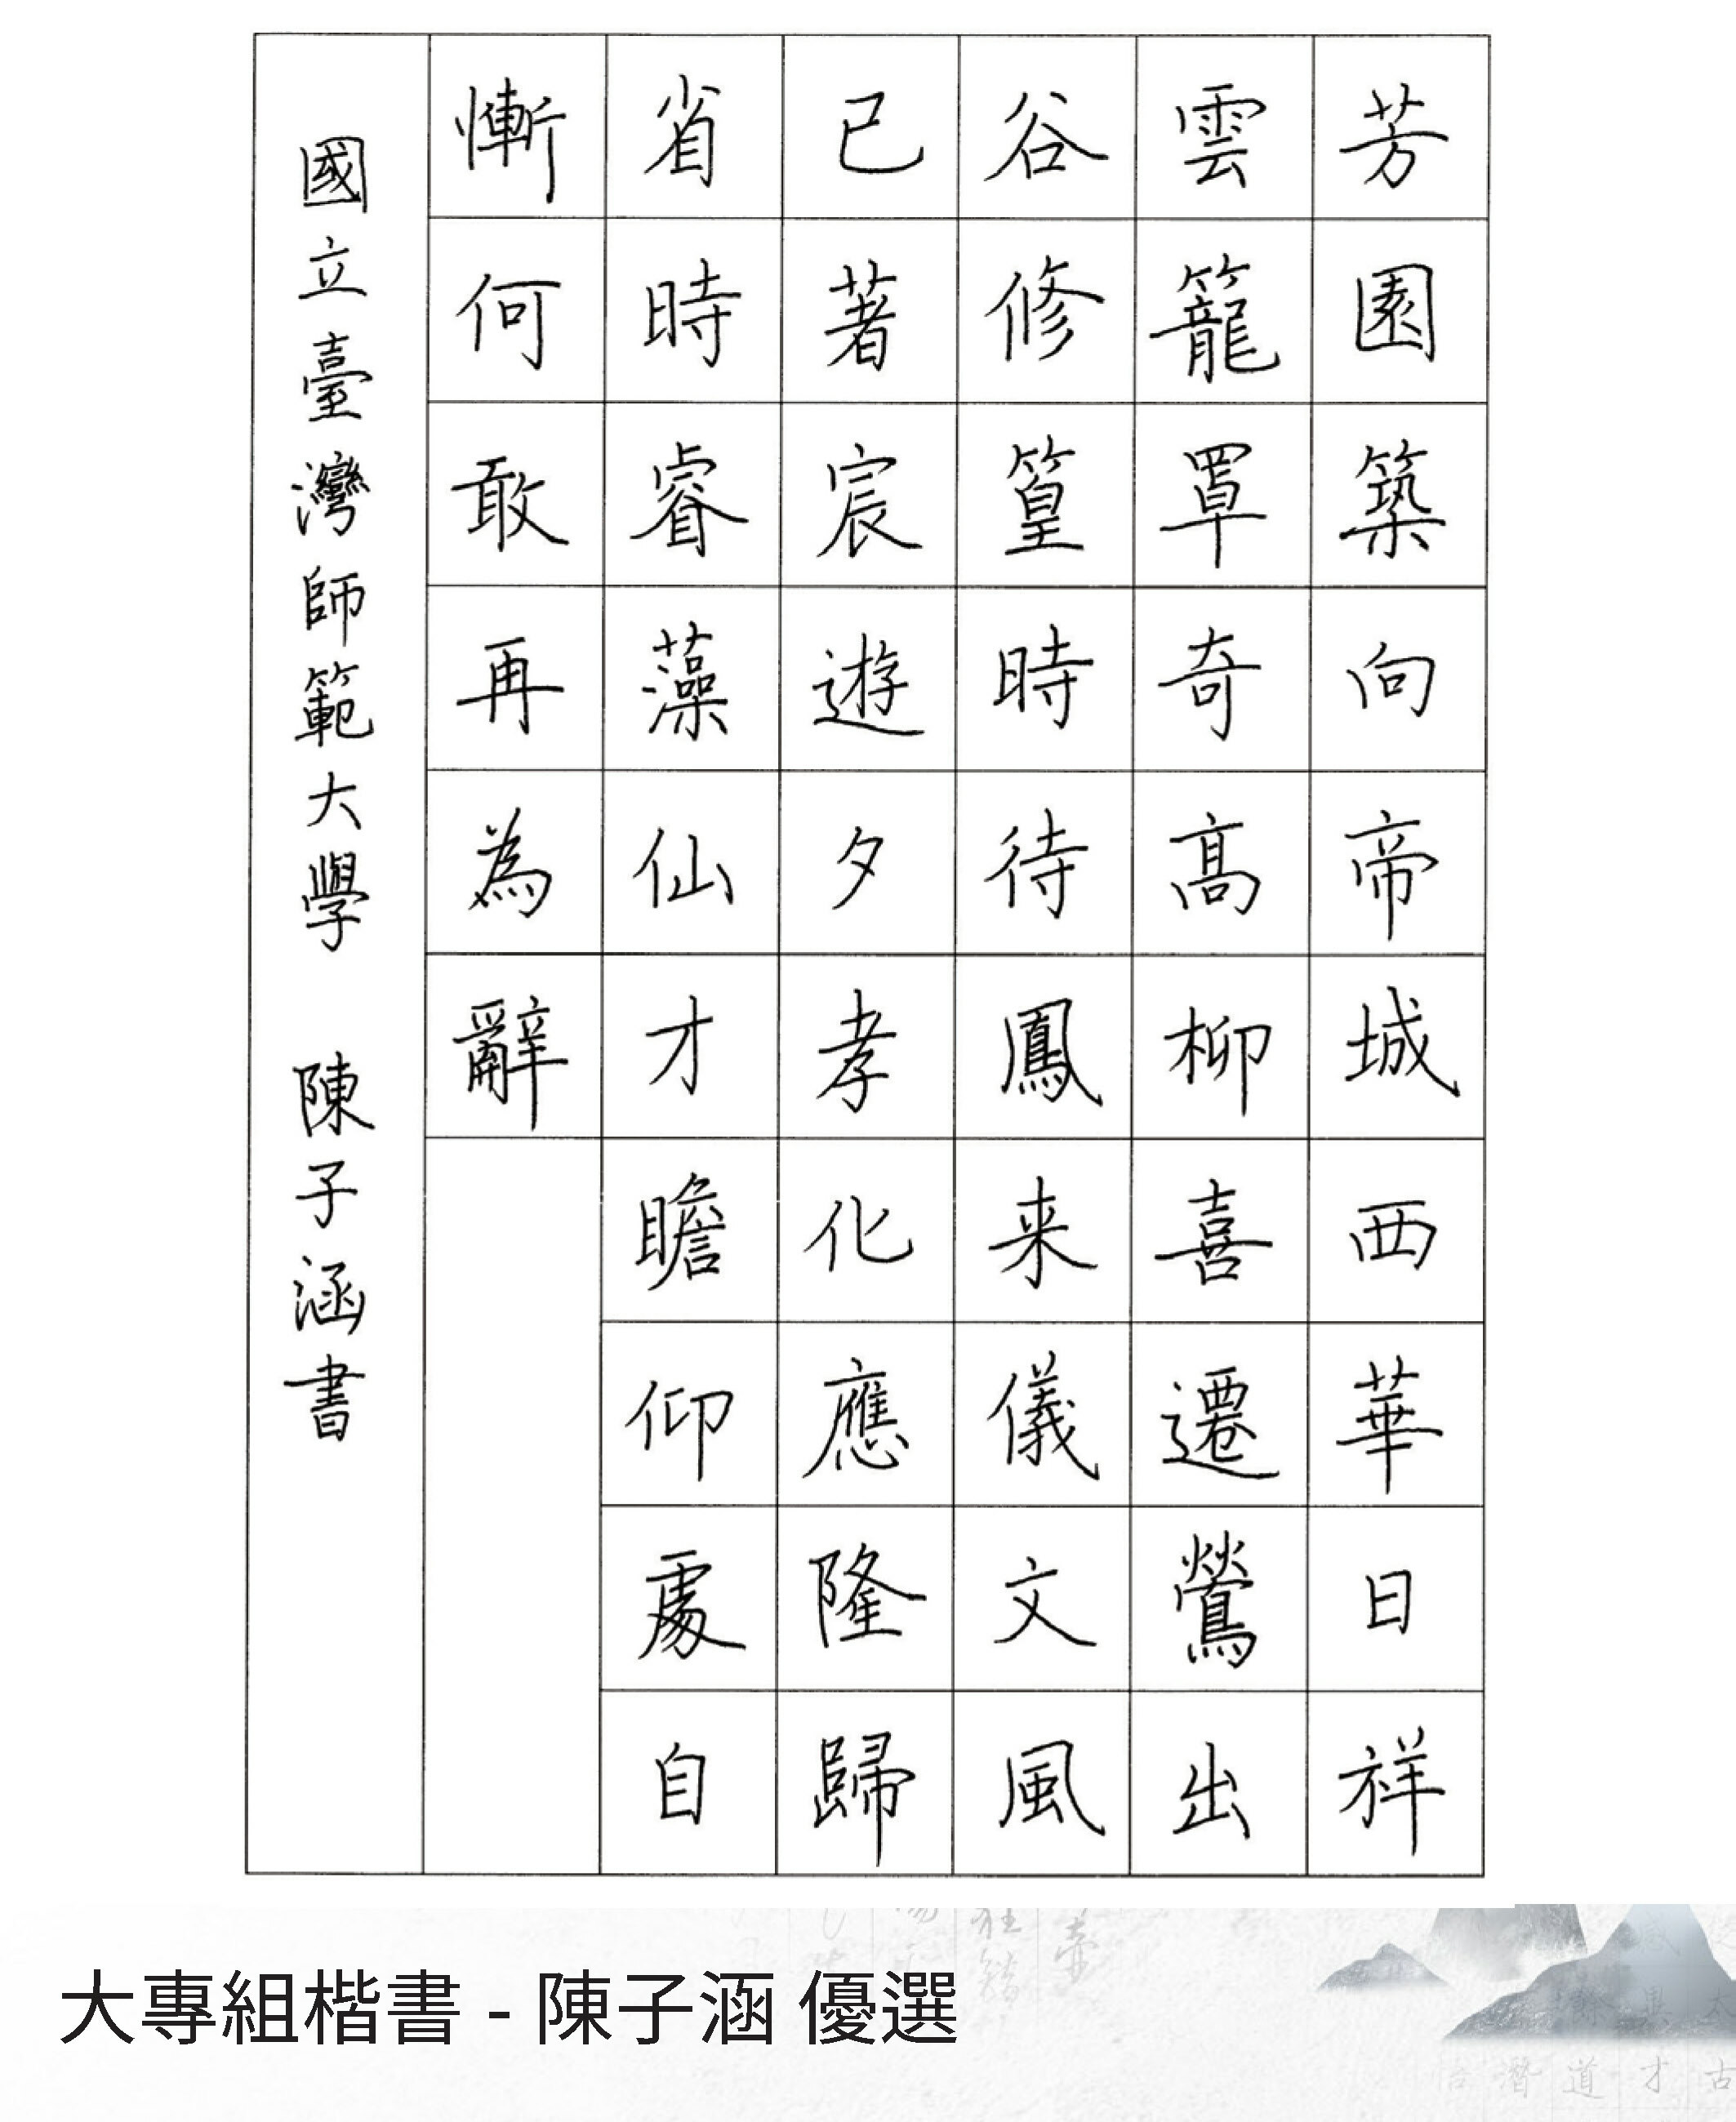 芳園築向帝城西華日祥
雲籠罩奇高柳喜遷鶯出
谷修篁時待鳳来儀文風
已著宸遊夕孝化應隆歸
省時睿藻仙才瞻仰處自
慚何敢再為辭
國立臺灣師範大學 陳子涵書
大專組楷書 - 陳子涵 優選